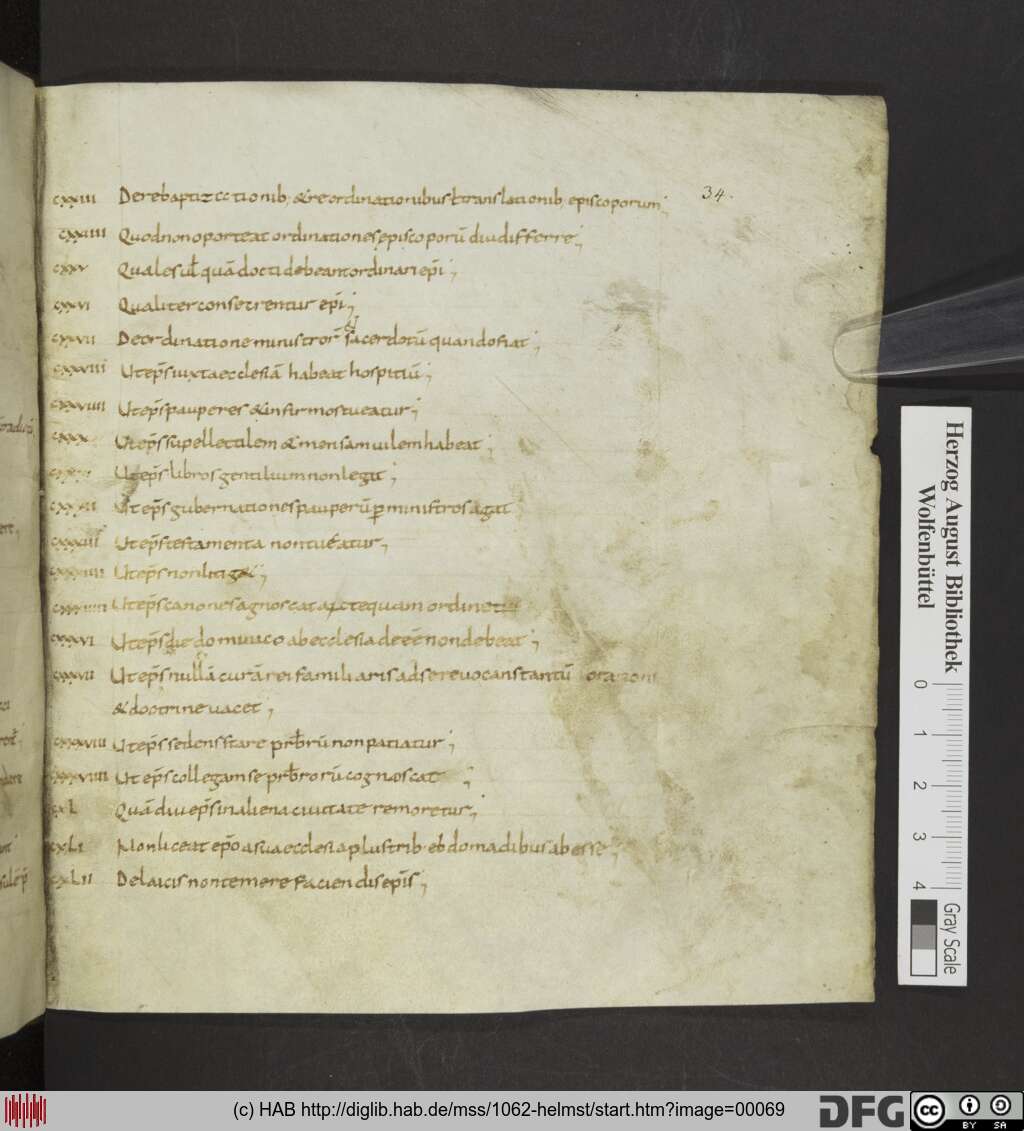 34.
cxxiii De rebaptizationib; & reordinationibus ł translationib; episcoporum;
cxxiiii Quod non oporteat ordinationes episcoporū diu differre;
cxxv Quales uł quā docti debeant ordinari ep̄i;
cxxvi Qualiter consecrentur ep̄i;
cxxvii De ordinatione ministror̄ & sacerdotū quando fiat;
cxxviii Ut ep̄s iuxta ecclesiā habeat hospitiū;
cxxviiii Ut ep̄s pauperes & infirmos tueatur;
cxxx Ut ep̄s supellectilem & mensam uilem habeat;
Ut ep̄s libros gentilium non legat;
cxxxii Ut ep̄s gubernationes pauperū ꝑ ministros agat
cxxxiii Ut ep̄s testamenta non tueatur;
cxxxiiii Ut ep̄s non litig&;
Ut ep̄s canones agnoscat antequam ordinetur
cxxxvi Ut ep̄s die dominico ab ecclesia deee͞ non debeat;
cxxxvii Ut ep̄s nullā curā rei familiaris ad se reuocans tantū orationi
& doctrine uacet;
cxxxviii Ut ep̄s sedens stare prb̄rū non patiatur;
cxxxviiii Ut ep̄s collegam se prb̄rorū cognoscat;
cxl Quā diu ep̄s in aliena ciuitate remoretur;
cxli Non liceat ep̄o a sua ecclesia plus trib; ebdomadibus abesse;
cxlii De laicis non temere faciendis ep̄is;
Herzog August Bibliothek
Wolfenbüttel
0 1 2 3 4
Gray Scale
(c) HAB http://diglib.hab.de/mss/1062-helmst/start.htm?image=00069
DFG
cc BY SA